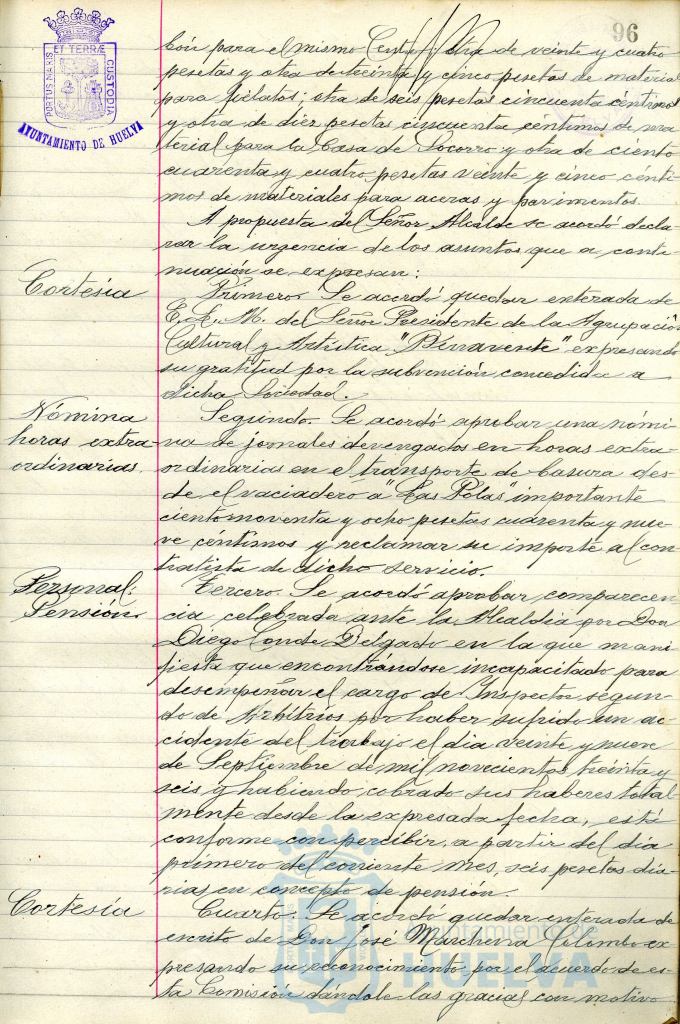 96
PORTUS MARIS ET TERRÆ CUSTODIA
AYUNTAMIENTO DE HUELVA
bón para el mismo Centro; otra de veinte y cuatro
pesetas y otra de treinta y cinco pesetas de material
para fielatos; otra de seis pesetas cincuenta céntimos
y otra de diez pesetas cincuenta céntimos de ma
terial para la Casa de Socorro y otra de ciento
cuarenta y cuatro pesetas veinte y cinco cénti
mos de materiales para aceras y pavimentos.
A propuesta del Señor Alcalde se acordó decla
rar la urgencia de los asuntos que a conti
nuación se expresan:
Cortesía
Primero. Se acordó quedar enterada de
del Señor Presidente de la Agrupación
Cultural y Artística "Benavente" expresando
su gratitud por la subvención concedida a
dicha Sociedad.
Nómina
horas extra
ordinarias.
Segundo. Se acordó aprobar una nómi
na de jornales devengados en horas extra
ordinarias en el transporte de basura des
de el vaciadero a "Las Polas" importante
ciento noventa y ocho pesetas cuarenta y nue
ve céntimos y reclamar su importe al con
tratista de dicho servicio.
Personal:
Pensión
Tercero. Se acordó aprobar comparecen
cia celebrada ante la Alcaldía por Don
Diego Conde Delgado en la que mani
fiesta que encontrándose incapacitado para
desempeñar el cargo de Inspector segun
do de Arbitrios por haber sufrido un ac
cidente del trabajo el día veinte y nueve
de Septiembre de mil novecientos treinta y
seis y habiendo cobrado sus haberes total
mente desde la expresada fecha, está
conforme con percibir, a partir del día
primero del corriente mes, seis pesetas dia
rias en concepto de pensión.
Cortesía
Cuarto. Se acordó quedar enterada de
escrito de Don José Marchena Colombo ex
presando su reconocimiento por el acuerdo de es
ta Comisión dándole las gracias con motivo
Ayuntamiento de
HUELVA